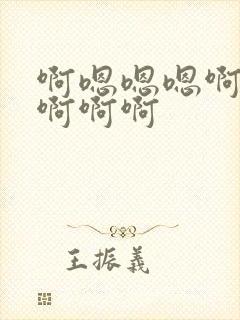 啊嗯嗯嗯啊
啊啊啊
王振义